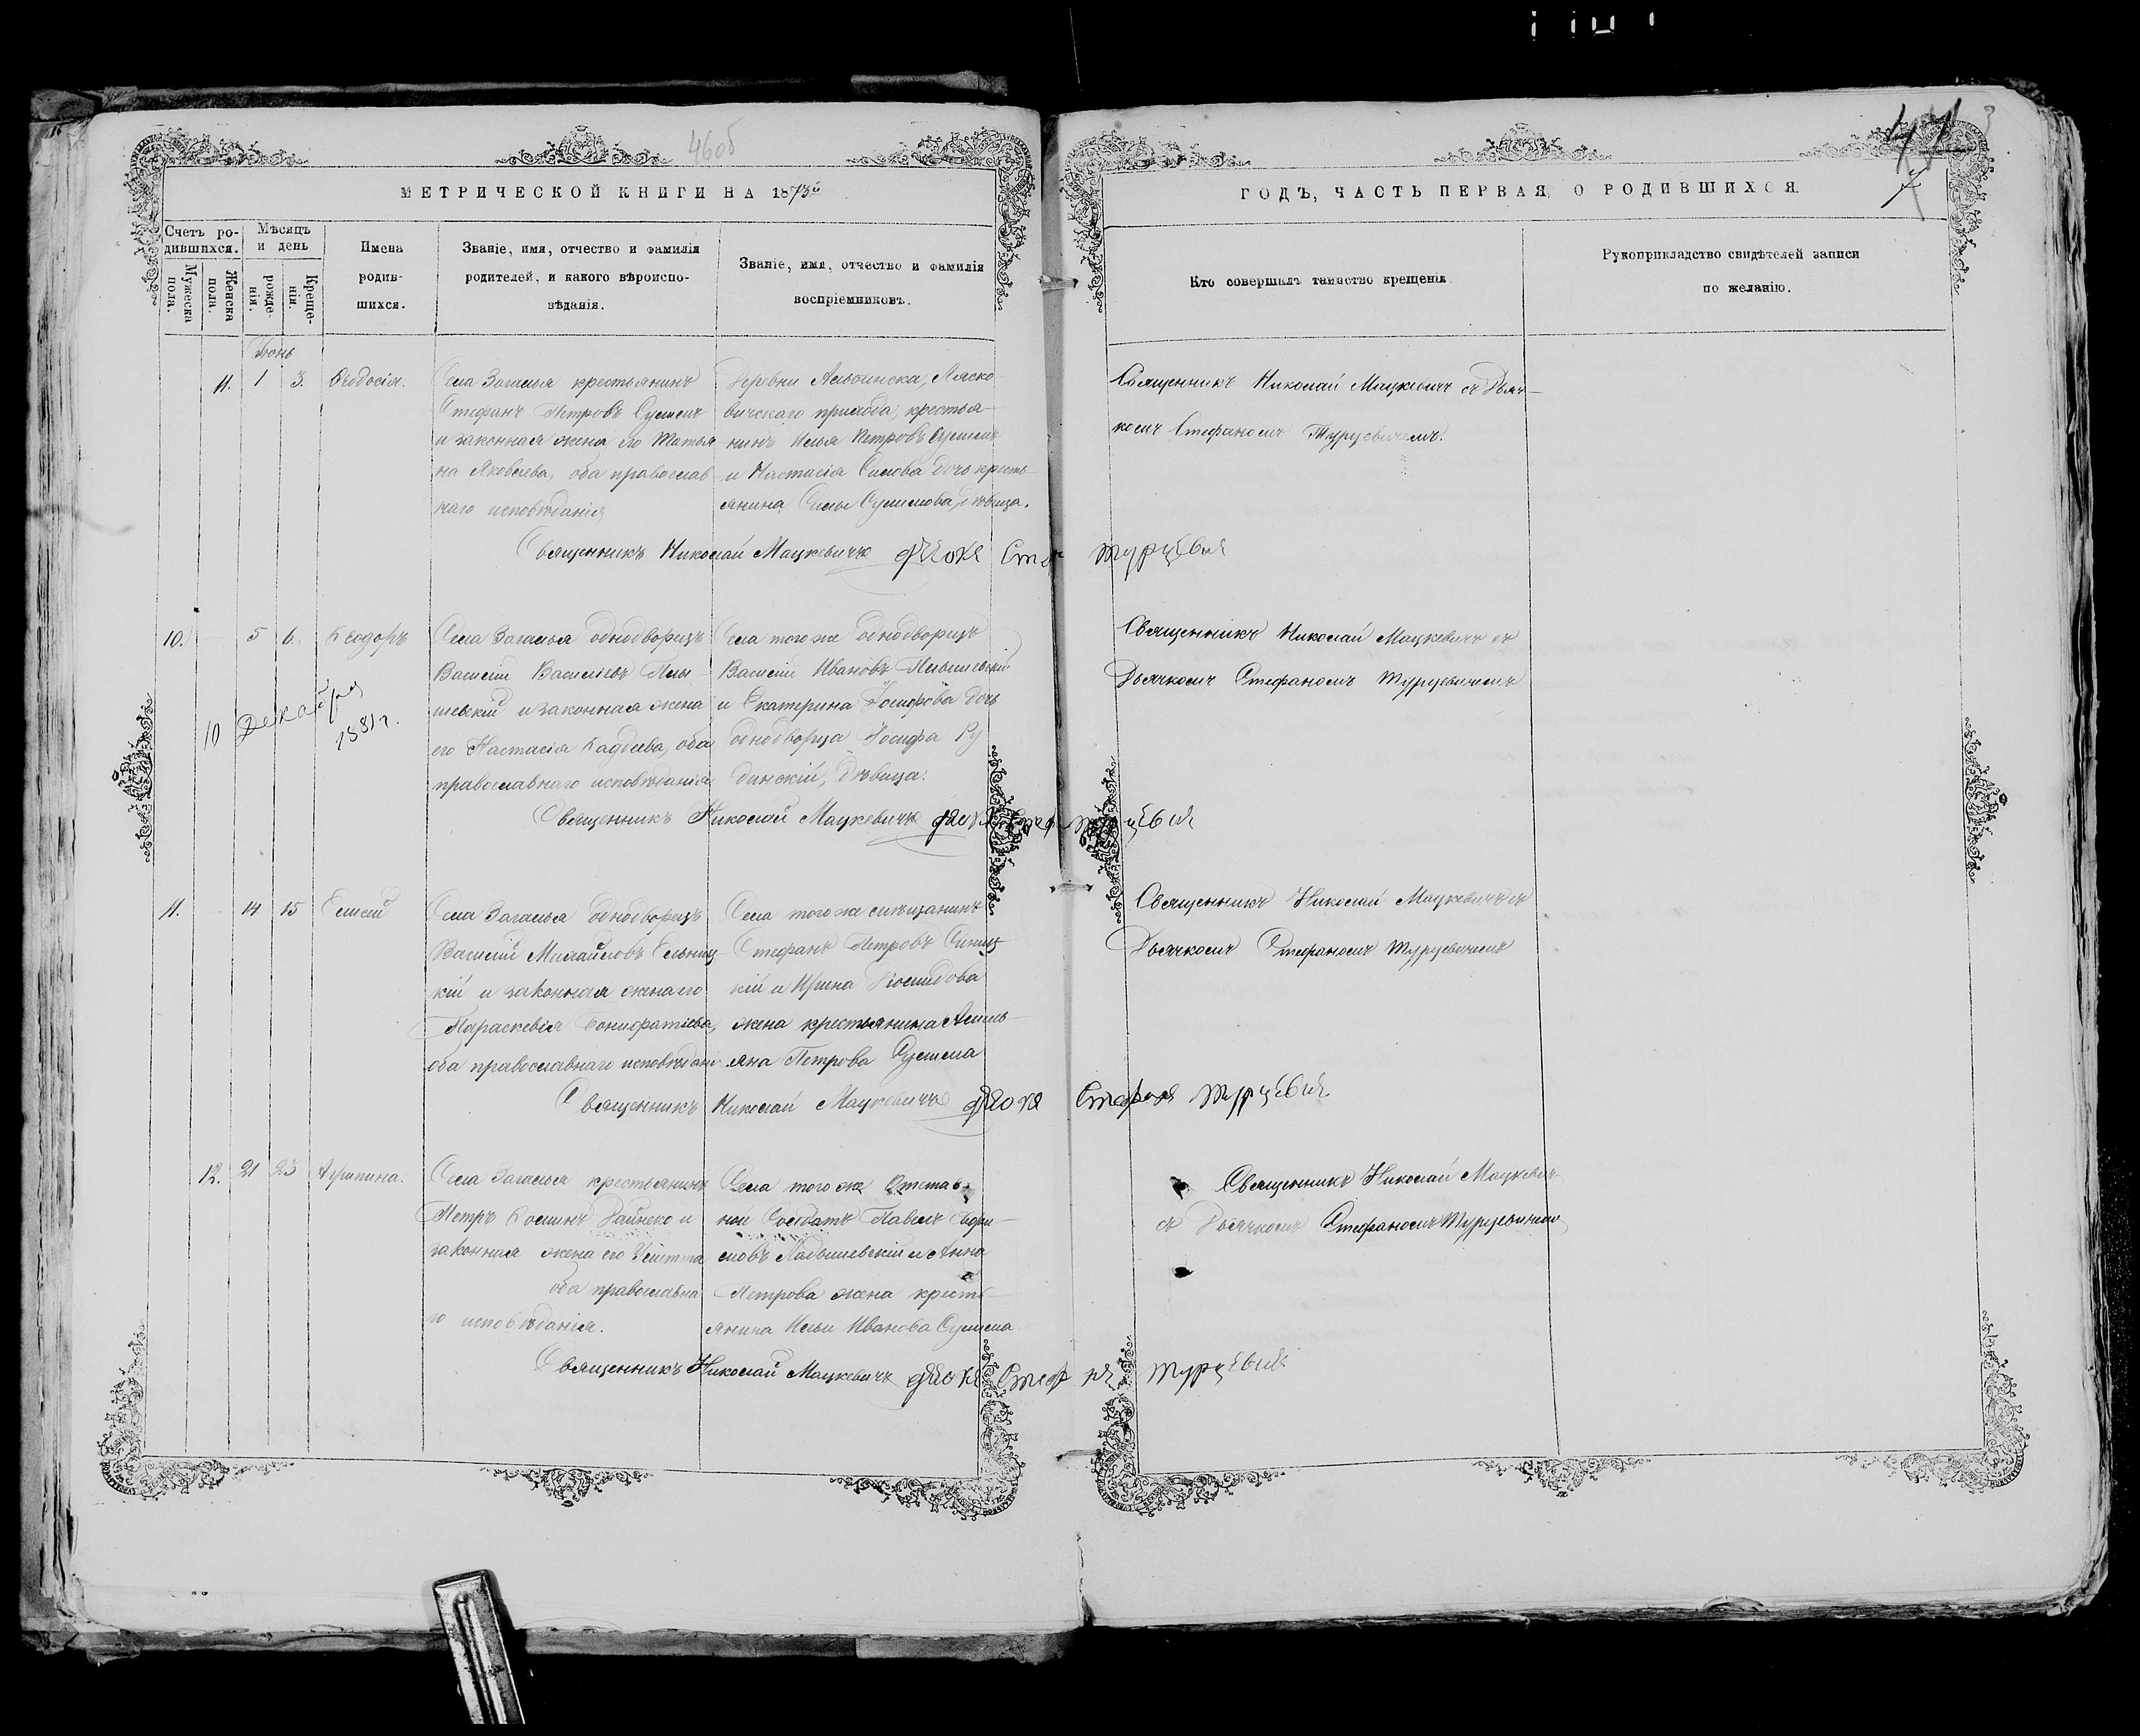 460б
МЕТРИЧЕСКОЙ КНИГИ НА 1873й
Счетъ ро-
дившихся.
Мужеска
пола.
Женска
пола.
Мѣсяцъ
и день
рожде-
нія.
Креще-
нія.
Имена
родив-
шихся.
Званіе, имя, отчество и фамилія
родителей, и какого вѣроиспо-
вѣданія.
Званіе, имя, отчество и фамилія
воспріемниковъ.
Іюнь
11. 1 3. Ѳеодосія.
Села Загалья крестьянинъ
Стефанъ Петровъ
и законная жена его Татья
на Яковлева, оба православ
наго исповѣданія
Деревни Альбинска, Ляско
вичскаго прихода, крестья
нинъ Илья Петровъ
и Настасія Силова дочь кресть
янина Силы девица.
Священникъ Николай Мацкевичъ
10. 5 6. Ѳеодоръ
Села Загалья однодворецъ
Василій Васильевъ
и законная жена
его Настасія Ѳаддеева, оба
православнаго исповѣданія
Села того же однодворецъ
Василій Ивановъ
и Екатерина Іосифова дочь
однодворца Іосифа Ру
динскій, дѣвица.
10 Декабря
1881 г.
Священникъ Николай Мацкевичъ
11. 14 15 Елисей
Села Загалья однодворецъ
Василій Михайловъ Ельниц
кій и законная жена его
Параскевія Вонифатіева,
оба православнаго исповѣдані
Села того же
Стефанъ Петровъ Синиц
кій и Ирина
жена крестьянина Аниль
яна Петрова
Священникъ Николай Мацкевичъ
12. 21 23 Агрипина.
Села Загалья крестьянинъ
Петръ Ѳоминъ Дайнеко и
законная жена его
оба православна
го исповѣданія.
Села того же Отстав
ной Солдатъ Павелъ
и Анна
Петрова жена кресть
янина Ильи Иванова
Священникъ Николай Мацкевичъ
47
7
ГОДЪ, ЧАСТЬ ПЕРВАЯ, О РОДИВШИХСЯ.
Кто совершалъ таинство крещенія
Рукоприкладство свидѣтелей записи
по желанію.
Священникъ Николай Мацкевичъ съ Дьяч-
комъ Стефаномъ Турцевичемъ.
Священникъ Николай Мацкевичъ съ
Дьячкомъ Стефаномъ Турцевичемъ
Священникъ Николай Мацкевичъ съ
Дьячкомъ Стефаномъ Турцевичемъ
Священникъ Николай Мацкевичъ
съ Дьячкомъ Стефаномъ Турцевичемъ